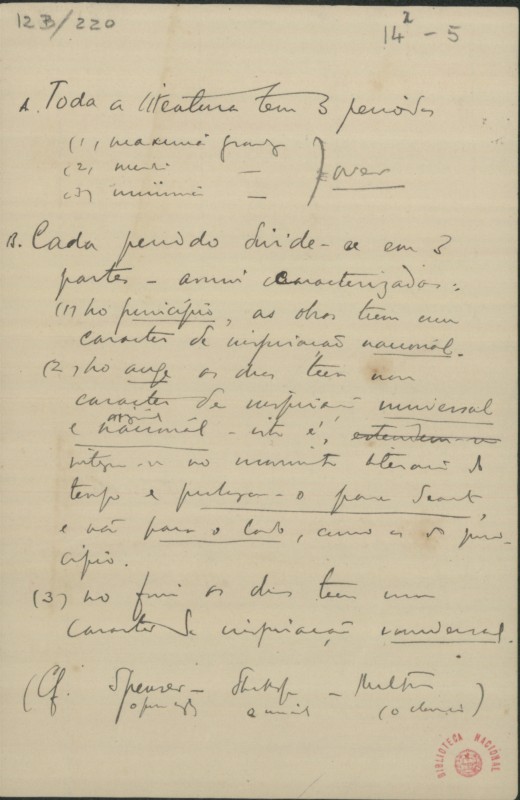 12B/220
14² - 5
A. Toda a literatura tem 3 periodos
(1)
(2) —
(3) —
B. Cada periodo divide-se em 3
partes - assim caracterizadas:
(1) no principio, as obras teem um
caracter de inspiração nacional.
(2) no auge as obras teem um
caracter de inspiração universal
e nacional - isto é,
integra-se no movimento literario do
tempo e - o para deante,
e não para o lado, como as do prin-
cipio.
(3) no fim as obras teem um
caracter de inspiração universal.
(Cf. Spenser - Shaksp - Milton
)
BIBLIOTECA NACIONAL